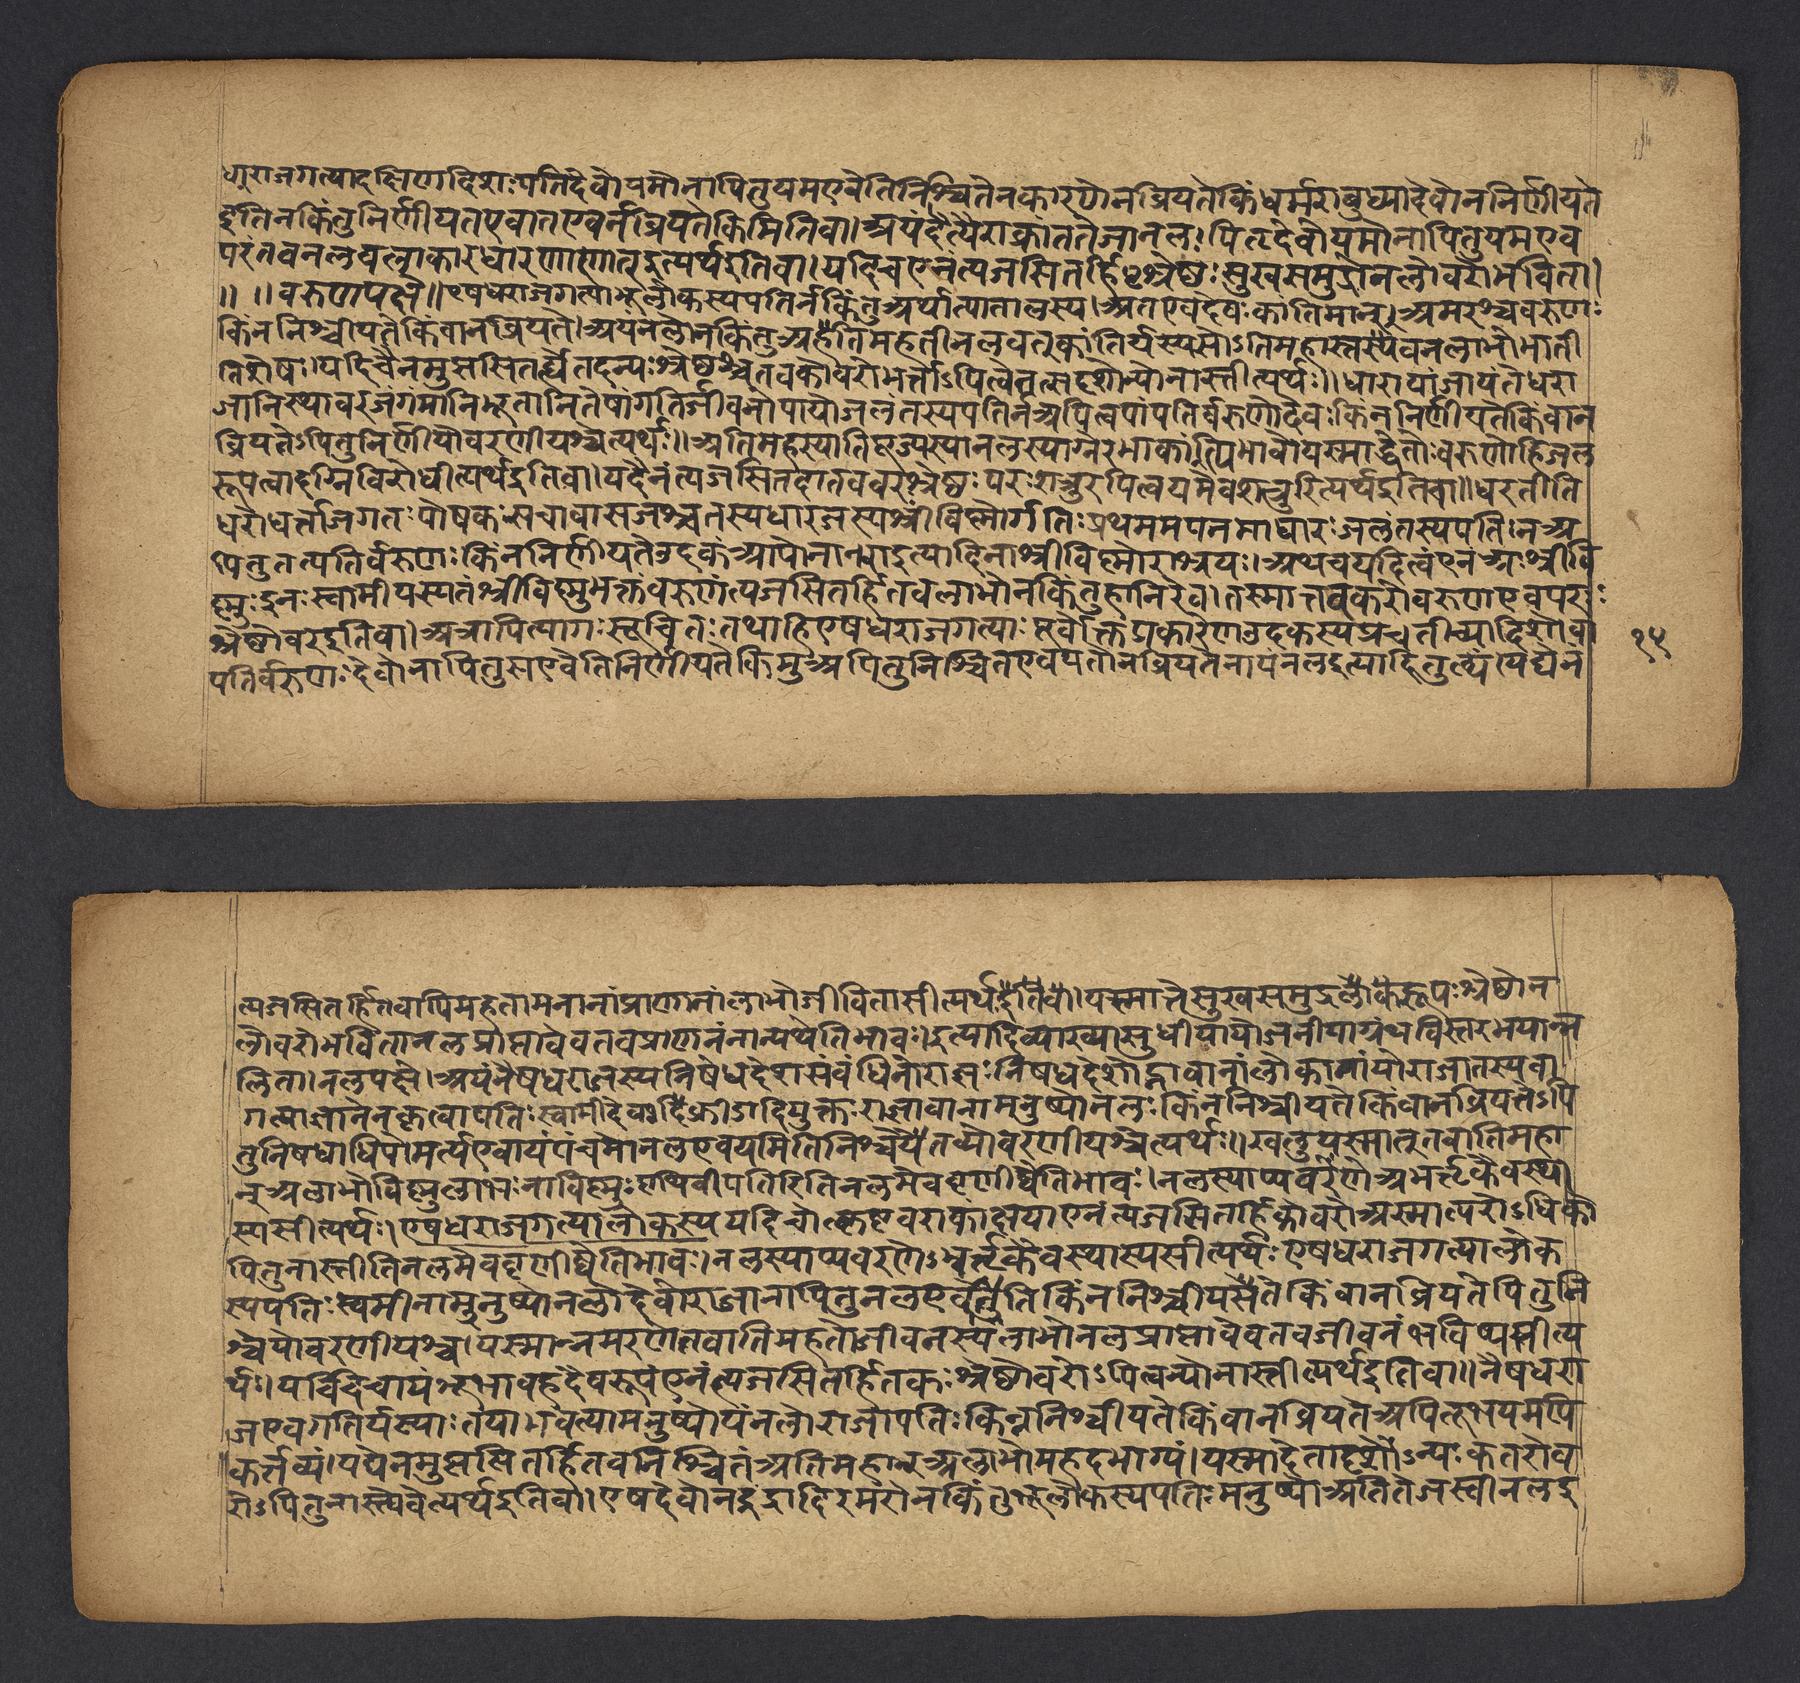 धराजगत्यादक्षिणदिशःपतिर्दैवोयमोनापितुयमएवेतिनिश्चितेनकारणेनव्रियतेकिंधर्मराबुध्यादेवोननिर्णीयते
इतिनकिंतुनिर्णीयतएवातएवर्नव्रियतेकिमितिवा।अयंदैत्यैराक्रांततेजानलः।पितृदेवोयमोनापितुयमएव
परंतवनलवलाकारधारणाणातइत्यर्थइतिवा।यदिचएनंत्यजसितर्हिश्रेष्ठःसुखसमुद्रोनलोवरोभविता।
॥ ॥वरुणपक्षे॥एषधराजगत्याभूलोकस्यपतिर्नकिंतुअर्थात्पातालस्य।अतएवदेवःकांतिमान्।अमरश्चवरुणः
किंननिश्चीयतेकिंवानव्रियते।अयंनलोनकिंतुअहेतिमहतीनलवत्कांतिर्यस्यसोऽतिमहास्तस्यैवनलाभोभाती
तिशेषः।यदिचैनमुज्झसितर्ह्येतदन्यःश्रेष्ठश्चतवकोवरोभर्त्ताऽपित्वेतत्सदृशोन्योनास्तीत्यर्थः॥धरायांजायंतेधरा
जानिस्थावरजंगमानिभूतानितेषांगतिर्जीवनोपायोजलंतस्यपतिर्नअपित्वपांपतिर्वरुणोदेवःकिंननिर्णीयतेकिंवान
व्रियतेऽपितुनिर्णीयोवरणीयश्चेत्यर्थः॥अतिमहस्यातिपूज्यस्यानलस्याग्नेरभाकांत्यभावोयस्माद्धेतोःवरुणोहिजल
रूपत्वादग्निविरोधीत्यर्थइतिवा।यदैनंत्यजसितदातववरःश्रेष्ठःपरःशत्रुरपित्वयमेवशत्रुरित्यर्थइतिवा॥धरतीति
धरोधर्त्ताजगतःपोषकःसचावासजश्चतस्यधारजस्यश्रीविष्णोर्गतिःप्रथममयनमाधारःजलंतस्यपतिःनअ
पितुतत्पतिर्वरुणःकिंननिर्णीयतेउदकंआपोनानराइत्यादिनाश्रीविष्णोराश्रयः।अथचयदित्वंएनंअःश्रीवि
ष्णुःइनःस्वामीयस्यतंश्रीविष्णुभक्तंवरुणंत्यजसितर्हितवलाभोनकिंतुहानिरेव।तस्मात्तवकरोवरुणएवपरः
श्रेष्ठोवरइतिवा।अत्रापित्यागःसूचितःतथाहिएषधराजगत्याःपूर्वोक्तप्रकारेणउदकस्यप्रचतीच्यादिशोवा
पतिर्वरुणःदेवोनापितुसएवेतिनिर्णीयतेकिमुअपितुनिश्चितएवयतोनव्रियतेनायंनलइत्यादितुल्यं।यद्येनं
१५
त्यजसितर्हितवापिमहतामनानांप्राणानांलाभोजीवितासीत्यर्थइतिवा।यस्मात्तेसुखसमुद्रलोकैकरूपःश्रेष्ठोन
लोवरोभवितानलप्राप्तावेवतवप्राणनंनान्यथेतिभावः।इत्यादिव्याख्यासुधीयायोजनीयाग्रंथविस्तरभयान्न
लिता।नलपक्षे।अयंनैषधराजस्यनिषधदेशसंबंधिनोराज्ञःनिषधदेशोद्भवानांलोकानांयोराजातस्यवा
गत्याज्ञानेनकृत्वापतिःस्वामीदेवःदिक्रीडादियुक्तःराजावानामनुष्योनलःकिंननिश्चीयतेकिंवानव्रियतेऽपि
तुनिषधाधिपोमर्त्यएवायंपंचमोनलएवयमितिनिश्चेयेतव्योवरणीयश्चेत्यर्थः॥खलुयस्मात्तुतवातिमहा
न्अलाभोविष्णुलाभःनाविष्णुःपृथिवीपतिरितिनलमेववृणीष्वेतिभावः।नलस्याप्यवरणेअभर्तृकैवस्था
स्यसीत्यर्थः।एषधराजगत्यालोकस्ययदिचोत्कृष्टवराकांक्षयाएनंत्यजसितर्हिकोवरोअस्मात्परोऽधिको
पितुनास्तीतिनलमेववृणीष्वेतिभावः।नलस्याप्यवरणेऽभर्तृकैवस्थास्यसीत्यर्थःएषधराजगत्यालोक
स्यपतिःस्वामीनामनुष्योनलोदेवोराजानापितुनलएवेतिकिंननिश्चीयतेकिंवानव्रियतेपितुनि
श्चेयोवरणीयश्च।यस्मान्नमरणेतवातिमहतोजीवनस्यलाभोनलप्राप्तावेवतवजीवनंभविष्यसीत्य
र्थः।यर्चिदिचायंभूभावहंदेवरूपंएनंत्यजसितर्हितेकःश्रेष्ठोवरोऽपित्वन्योनास्तीत्यर्थइतिवा॥नैषधरा
जएवगतिर्यस्याःतयाभवत्यामनुष्योयंनलोराजापतिःकिंननिश्चीयतेकिंवानव्रियतेअपितूभयमपि
कर्तव्यं।यद्येनमुज्झसितर्हितवनिश्चितंअतिमहान्अलाभोमहदभाग्यं।यस्मादेतादृशोऽन्यःकतरोव
रोऽपितुनास्त्येवेत्यर्थइतिवा।एषदेवोनइंद्रादिरमरोनकिंतुभूलोकस्यपतिःमनुष्योअतितेजस्वीनलइ